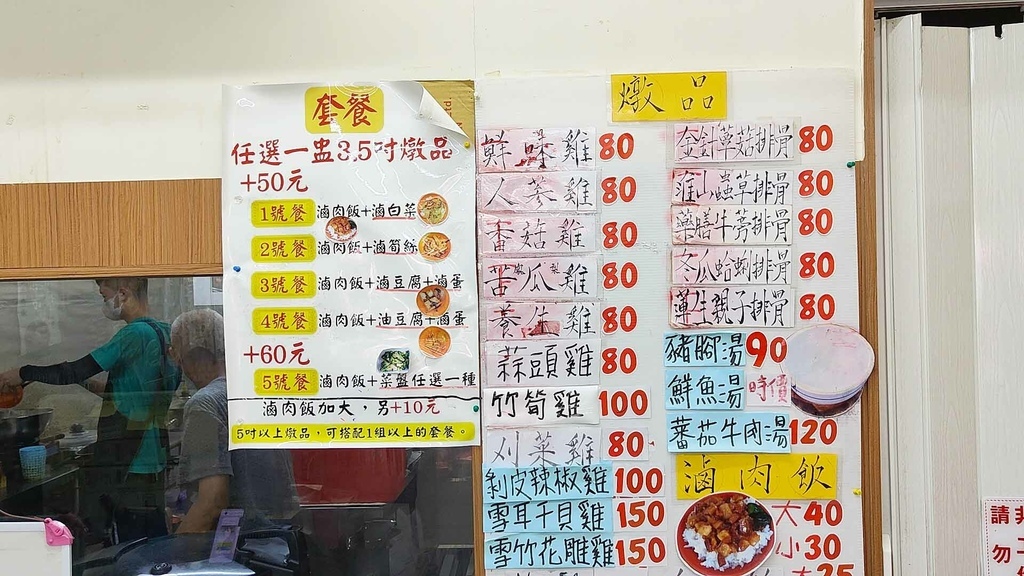 套餐
任選一盅3.5吋燉品
+50元
1號餐 滷肉飯+滷白菜
2號餐 滷肉飯+滷筍絲
3號餐 滷肉飯+滷豆腐+滷蛋
4號餐 滷肉飯+油豆腐+滷蛋
+60元
5號餐 滷肉飯+菜盤任選一種
滷肉飯加大，另+10元
5吋以上燉品，可搭配1組以上的套餐。
燉品
鮮味雞 80
人蔘雞 80
香菇雞 80
苦瓜雞 80
養生雞 80
蒜頭雞 80
竹筍雞 100
刈菜雞 80
剝皮辣椒雞 100
雪耳干貝雞 150
雪竹花雕雞 150
金針草菇排骨 80
淮山蟲草排骨 80
藥膳牛蒡排骨 80
冬瓜蛤蜊排骨 80
蓮生親子排骨 80
豬腳湯 90
鮮魚湯 時價
蕃茄牛肉湯 120
滷肉飯
大40
小30
大25
請
勿
非
工